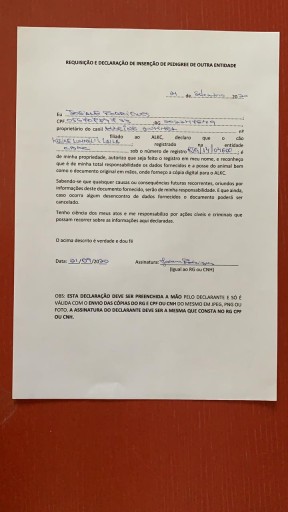 REQUISIÇÃO E DECLARAÇÃO DE INSERÇÃO DE PEDIGREE DE OUTRA ENTIDADE
01 de Setembro 2020
Eu
CPF RG
proprietário do canil nº
filiado ao ALKC, declaro que o cão
registrado na entidade
sob o número de registro é
de minha propriedade, autorizo que seja feito o registro em meu nome, e reconheço
que é de minha total responsabilidade os dados fornecidos e a posse do animal bem
como o documento original em mãos, onde forneço a cópia digital para o ALKC.
Sabendo-se que quaisquer causas ou consequências futuras recorrentes, oriundas por
informações deste documento fornecido, serão de minha responsabilidade. E que ainda,
caso ocorra algum desencontro de dados fornecidos o documento poderá ser
cancelado.
Tenho ciência dos meus atos e me responsabilizo por ações civeis e criminais que
possam recorrer sobre as informações aqui declaradas.
O acima descrito é verdade e dou fé
Data: 01/09/2020 Assinatura:
(Igual ao RG ou CNH)
OBS: ESTA DECLARAÇÃO DEVE SER PREENCHIDA A MÃO PELO DECLARANTE E SÓ É
VÁLIDA COM O ENVIO DAS CÓPIAS DO RG E CPF OU CNH DO MESMO EM JPEG, PNG OU
FOTO. A ASSINATURA DO DECLARANTE DEVE SER A MESMA QUE CONSTA NO RG CPF
OU CNH.